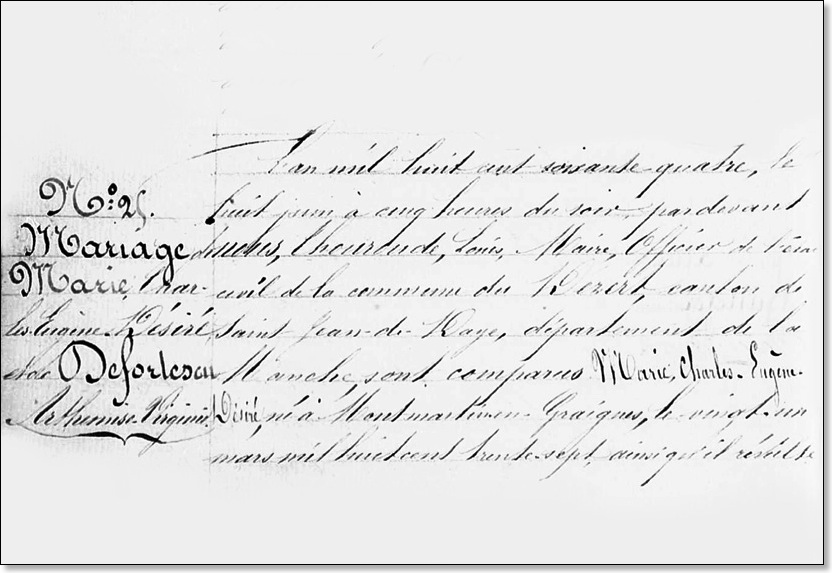 N.° 25.
Mariage de
Marie, Char-
les-Eugène-Désiré
et de Defortescu
Arthemise-Virginie
L'an mil huit cent soixante quatre, le
huit juin à cinq heures du soir, pardevant
nous, Thouroude, Louis, Maire, Officier de l'état
civil de la commune du Dézert, canton de
Saint-Jean-de-Daye, département de la
Manche, sont comparus Marie, Charles-Eugène-
Désiré, né à Montmartin-en-Graignes, le vingt-un
mars mil huit cent trente-sept, ainsi qu'il résulte